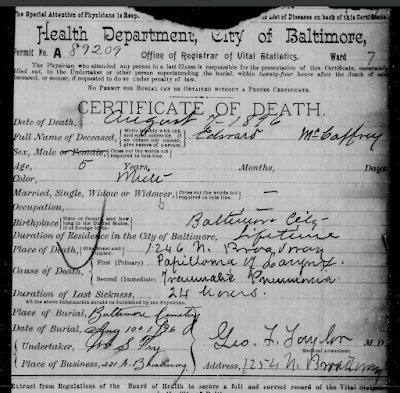 The Special Attention of Physicians is Resp to List of Diseases on back of this Certificate
Health Department, City of Baltimore,
Permit No. A 89209 Office of Registrar of Vital Statistics. Ward 7
The Physician who attended any person in a last illness is responsible for the presentation of this Certificate, accurately
filled out, to the Undertaker or other person superintending the burial, within twenty-four hours after the death of said
deceased, or sooner, if requested to do so under penalty of law.
No Permit for Burial can be Obtained without a Proper Certificate.
CERTIFICATE OF DEATH.
Date of Death, August 7 - 1896
Full Name of Deceased, { Write legibly with ink and spell correctly. If an infant not named, give names of parents. Edward McCaffrey
Sex, Male or Female, { Cross out the words not required in this line.
Age, 5 Years, Months, Days
Color, White
Married, Single, Widow or Widower, { Cross out the words not required in this line. —
Occupation,
Birthplace { State or County and how long in the United States, if of foreign birth. Baltimore City
Duration of Residence in the City of Baltimore, Lifetime
Place of Death, { Street and number. 1246 N. Broadway
Cause of Death, { First (Primary) Papilloma of Larynx.
Second (Immediate) Traumatic Pneumonia
Duration of Last Sickness, 24 hours.
All the above information should be furnished by the Physician.
Place of Burial, Baltimore Cemetery
Date of Burial, Aug 10th 1896
Geo. L. Taylor M. D.
Medical Attendant.
Undertaker, S Fry
Place of Business, 221 N. Broadway Address, 1254 N. Broadway
Extract from Regulations of the Board of Health to secure a full and correct record of the Vital Statistics